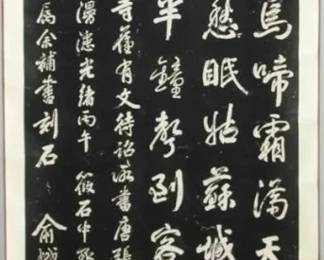 烏啼霜滿天
愁眠姑蘇城
半鐘聲到客
寺舊有文待詔所書唐張
漫漶光緒丙午筱石中丞
屬余補書刻石 俞樾